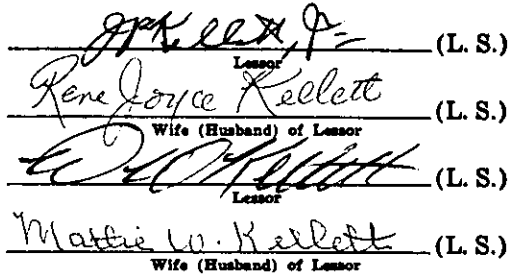 JP Kellett, Jr (L. S.)
Lessor
Rene Joyce Kellett (L. S.)
Wife (Husband) of Lessor
Kellett (L. S.)
Lessor
Mattie W. Kellett (L. S.)
Wife (Husband) of Lessor